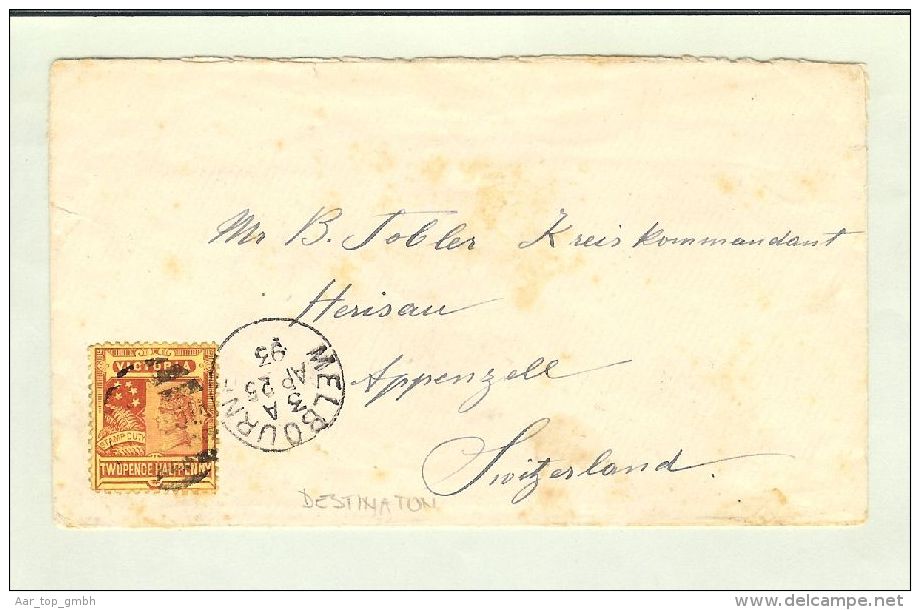 Mr B. Tobler Kreiskommandant
Herisau
Appenzell
Switzerland.
VICTORIA
STAMP DUTY
TWOPENCE HALFPENNY
MELBOURNE
3 A
AP 25
93
DESTINATON
Aar_top_gmbh
delcampe.net